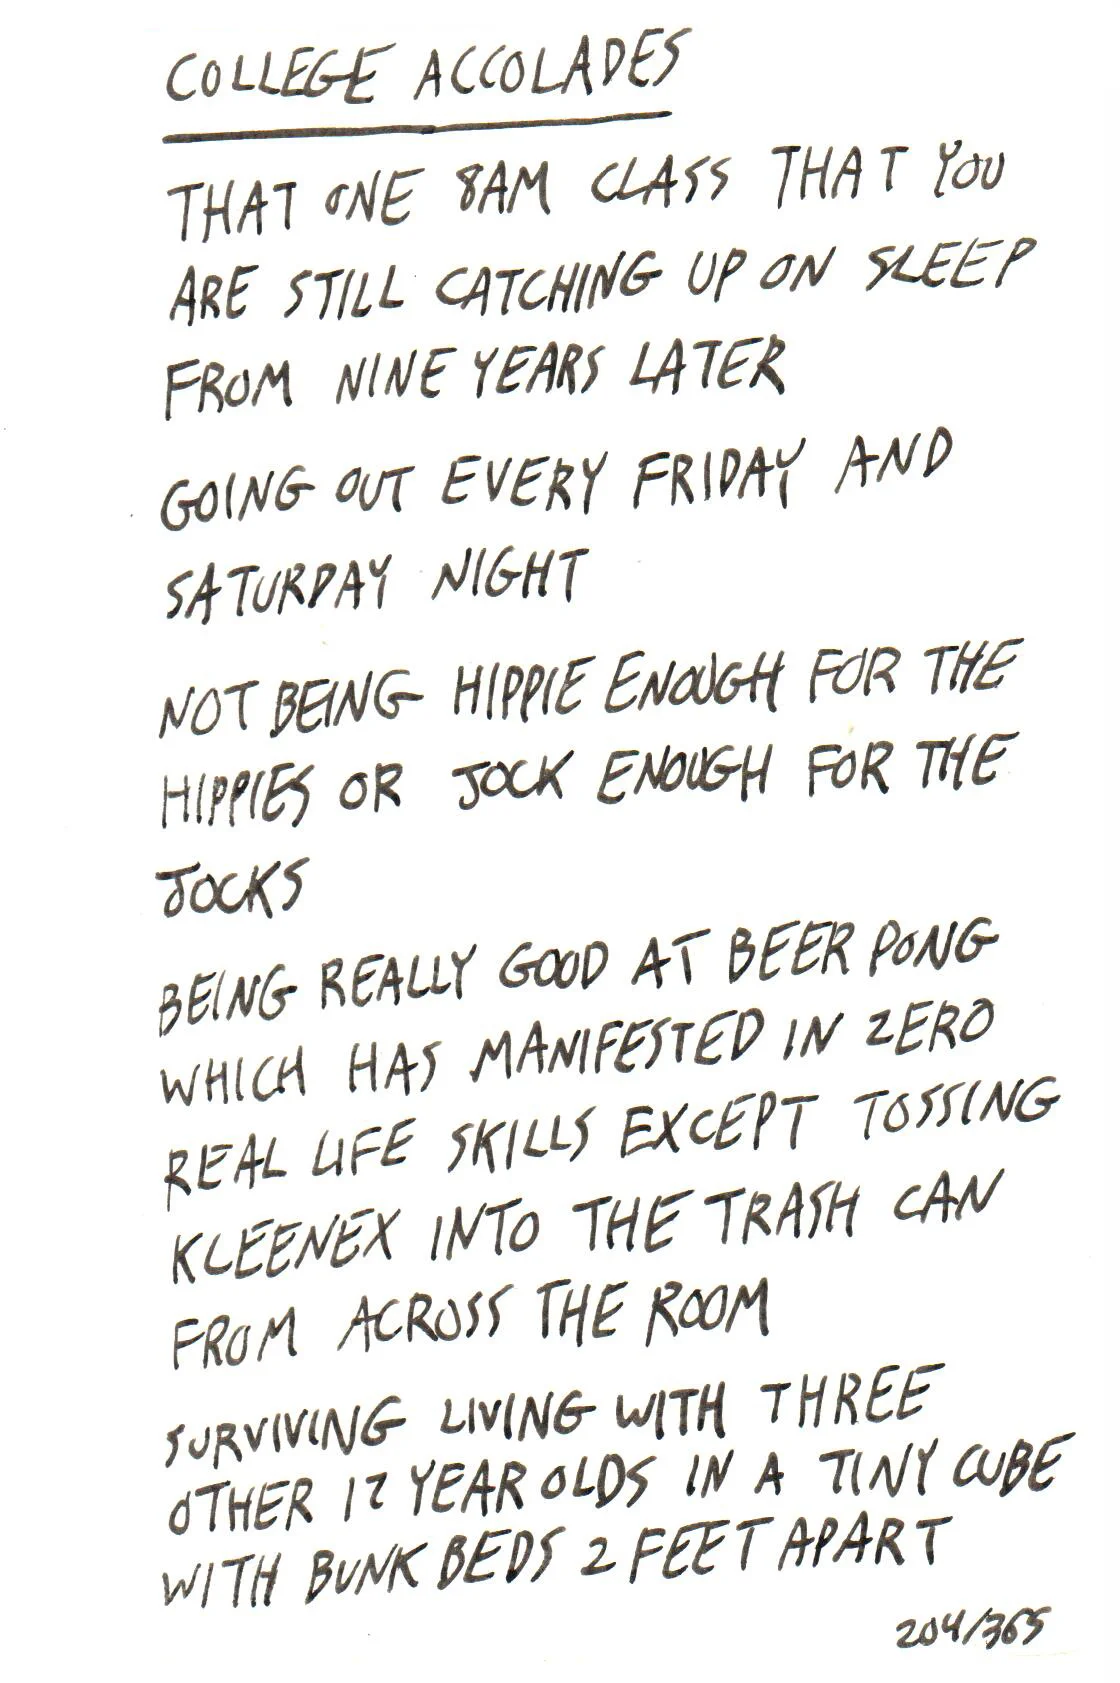 COLLEGE ACCOLADES
THAT ONE 8AM CLASS THAT YOU
ARE STILL CATCHING UP ON SLEEP
FROM NINE YEARS LATER
GOING OUT EVERY FRIDAY AND
SATURDAY NIGHT
NOT BEING HIPPIE ENOUGH FOR THE
HIPPIES OR JOCK ENOUGH FOR THE
JOCKS
BEING REALLY GOOD AT BEER PONG
WHICH HAS MANIFESTED IN ZERO
REAL LIFE SKILLS EXCEPT TOSSING
KLEENEX INTO THE TRASH CAN
FROM ACROSS THE ROOM
SURVIVING LIVING WITH THREE
OTHER 17 YEAR OLDS IN A TINY CUBE
WITH BUNK BEDS 2 FEET APART
204/365